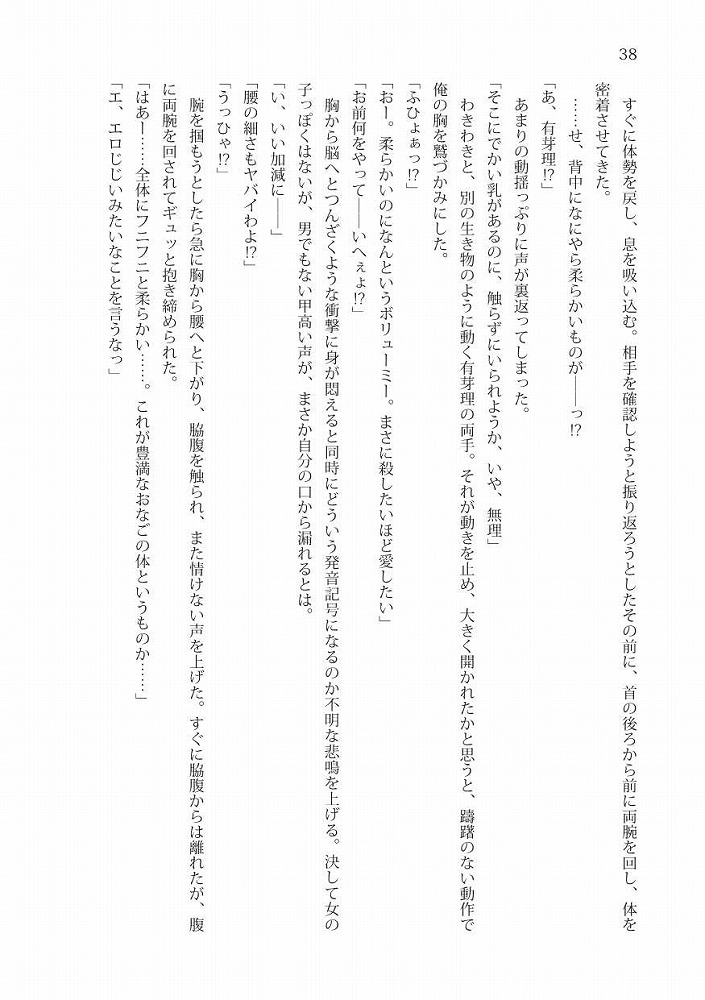 38
すぐに体勢を戻し、息を吸い込む。相手を確認しようと振り返ろうとしたその前に、首の後ろから前に両腕を回し、体を
密着させてきた。
……せ、背中になにやら柔らかいものが――っ!?
「あ、有芽理!?」
あまりの動揺っぷりに声が裏返ってしまった。
「そこにでかい乳があるのに、触らずにいられようか、いや、無理」
わきわきと、別の生き物のように動く有芽理の両手。それが動きを止め、大きく開かれたかと思うと、躊躇のない動作で
俺の胸を鷲づかみにした。
「ふひょぁっ!?」
「おー。柔らかいのになんというボリューミー。まさに殺したいほど愛したい」
「お前何をやって――いへぇょ!?」
胸から脳へとつんざくような衝撃に身が悶えると同時にどういう発音記号になるのか不明な悲鳴を上げる。決して女の
子っぽくはないが、男でもない甲高い声が、まさか自分の口から漏れるとは。
「い、いい加減に――」
「腰の細さもヤバイわよ!?」
「うっひゃ!?」
腕を掴もうとしたら急に胸から腰へと下がり、脇腹を触られ、また情けない声を上げた。すぐに脇腹からは離れたが、腹
に両腕を回されてギュッと抱き締められた。
「はあー……全体にフニフニと柔らかい……。これが豊満なおなごの体というものか……」
「エ、エロじじいみたいなことを言うなっ」